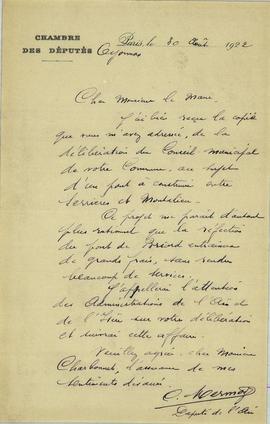 CHAMBRE
DES DÉPUTÉS
Paris, le 30 Août 1922
Oyonnax
Cher Monsieur le Maire
J'ai bien reçu la copie
que vous m'avez adressée, de la
délibération du Conseil municipal
de votre Commune, au sujet
d'un pont à construire entre
Serrières et Montalieu.
Ce projet me parait d'autant
plus rationnel que la réfection
du pont de Briord entrainera
de grands frais, sans rendre
beaucoup de services.
J'appellerai l'attention
des Administrations de l'Ain et
de l'Isère sur votre délibération
et suivrai cette affaire.
Veuillez agréer, cher Monsieur
Charbonnet, l'assurance de mes
sentiments dévoués.
Député de l'Ain